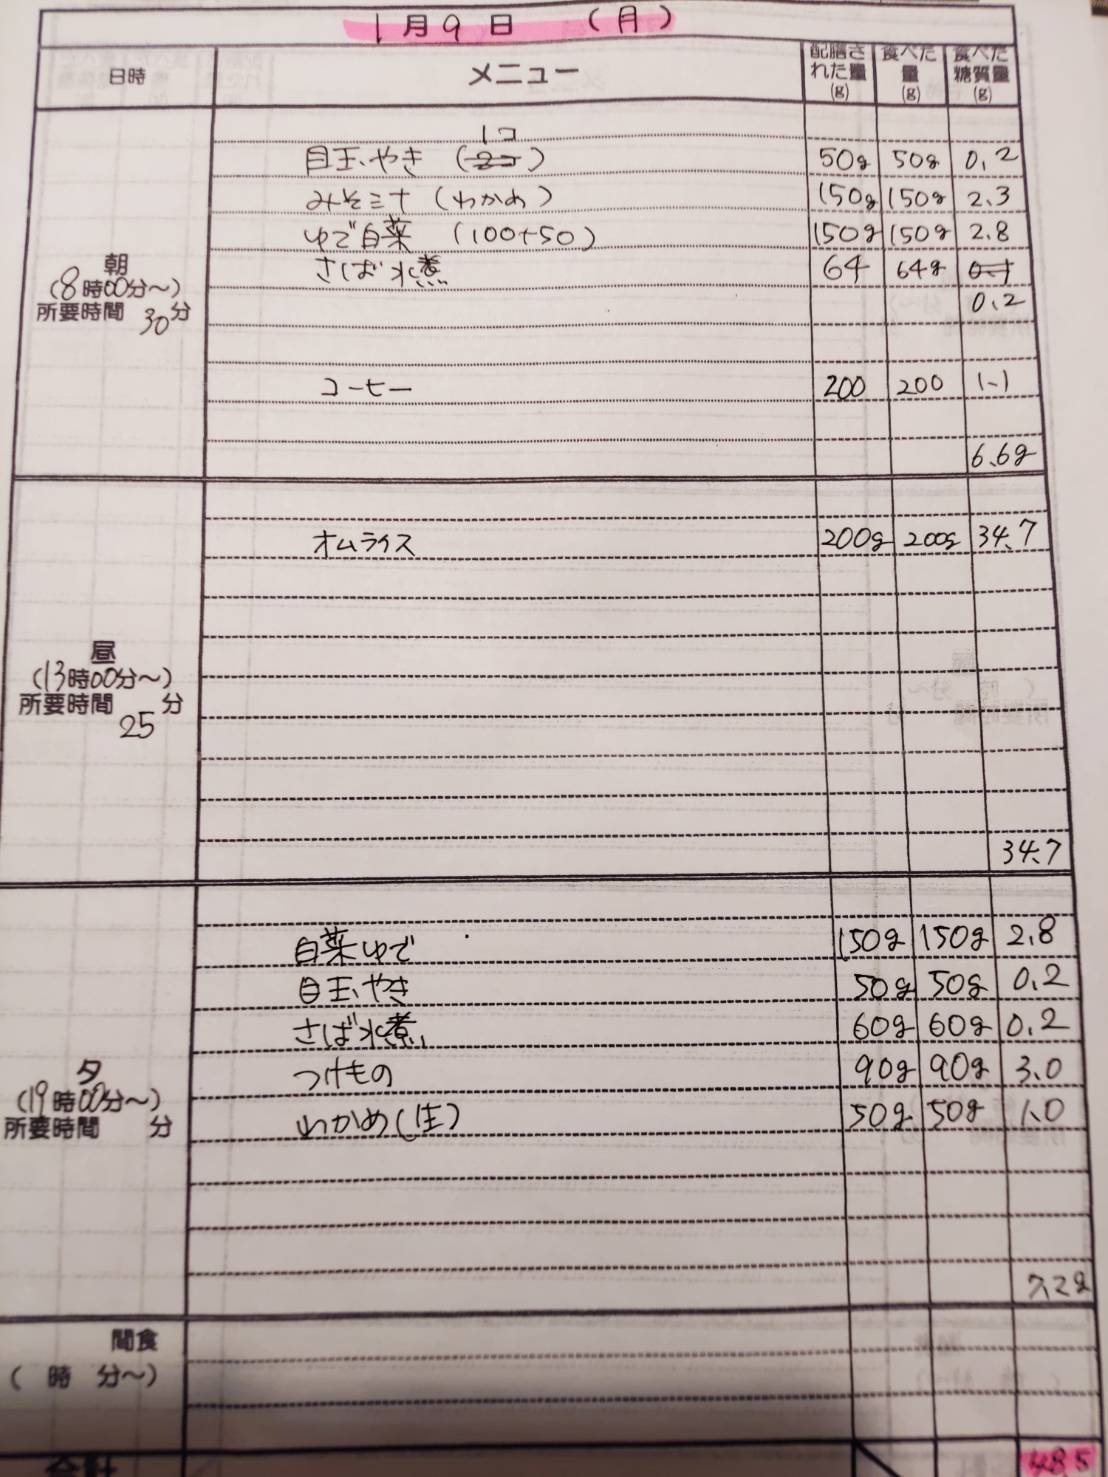 1月9日 (月)
日時 メニュー 配膳された量(g) 食べた量(g) 食べた糖質量(g)
朝
(8時00分～)
所要時間 30分
1コ
目玉やき (2コ) 50g 50g 0.2
みそ汁 (わかめ) 150g 150g 2.3
ゆで白菜 (100+50) 150g 150g 2.8
さば水煮 64 64g
0.2
コーヒー 200 200 1.1
6.6g
昼
(13時00分～)
所要時間 25分
オムライス 200g 200g 34.7
34.7
夕
(19時00分～)
所要時間 分
白菜ゆで 150g 150g 2.8
目玉やき 50g 50g 0.2
さば水煮 60g 60g 0.2
つけもの 90g 90g 3.0
わかめ(生) 50g 50g 1.0
7.2g
間食
( 時 分～)
合計 48.5